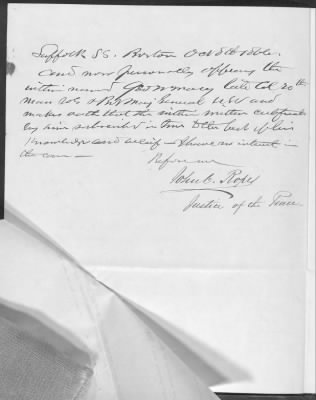 Suffolk SS. Boston Oct 8th 1866.
And now personally appears the
within named Geo N Macy late Col 20th
Mass Vols & Bvt Maj General USV and
makes oath that the within written certificate
by him subscribed is true to the best of his
knowledge and belief & have no interest in
the case —
Before me
John C. Ropes
Justice of the Peace